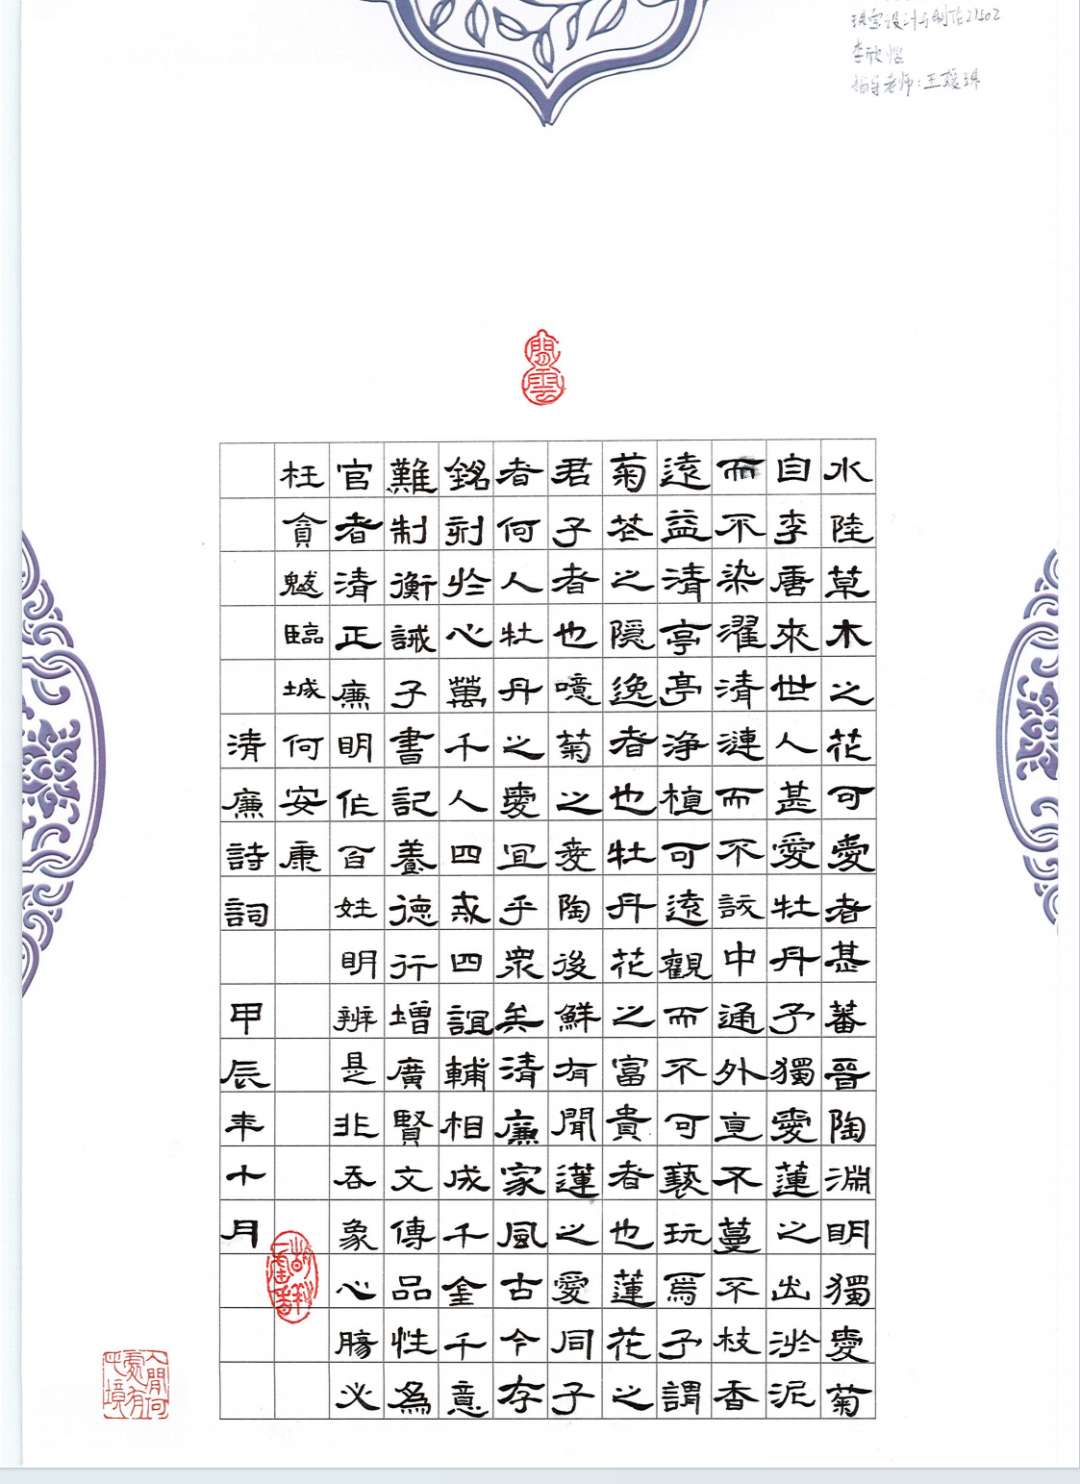 珠宝设计与制作21502
李欣怡
指导老师：王媛琪
水陸草木之花可愛者甚蕃晉陶淵明獨愛菊
自李唐來世人甚愛牡丹予獨愛蓮之出淤泥
而不染濯清漣而不妖中通外直不蔓不枝香
遠益清亭亭净植可遠觀而不可褻玩焉予謂
菊花之隱逸者也牡丹花之富貴者也蓮花之
君子者也噫菊之愛陶後鮮有聞蓮之愛同予
者何人牡丹之愛宜乎衆矣清廉家風古今存
銘刻於心萬千人四戒四誼輔相成千金千意
難制衡誡子書記養德行增廣賢文傳品性為
官者清正廉明作百姓明辨是非吞象心腸必
枉貪魃臨城何安康
清廉詩詞 甲辰年十月
人間何處有此境